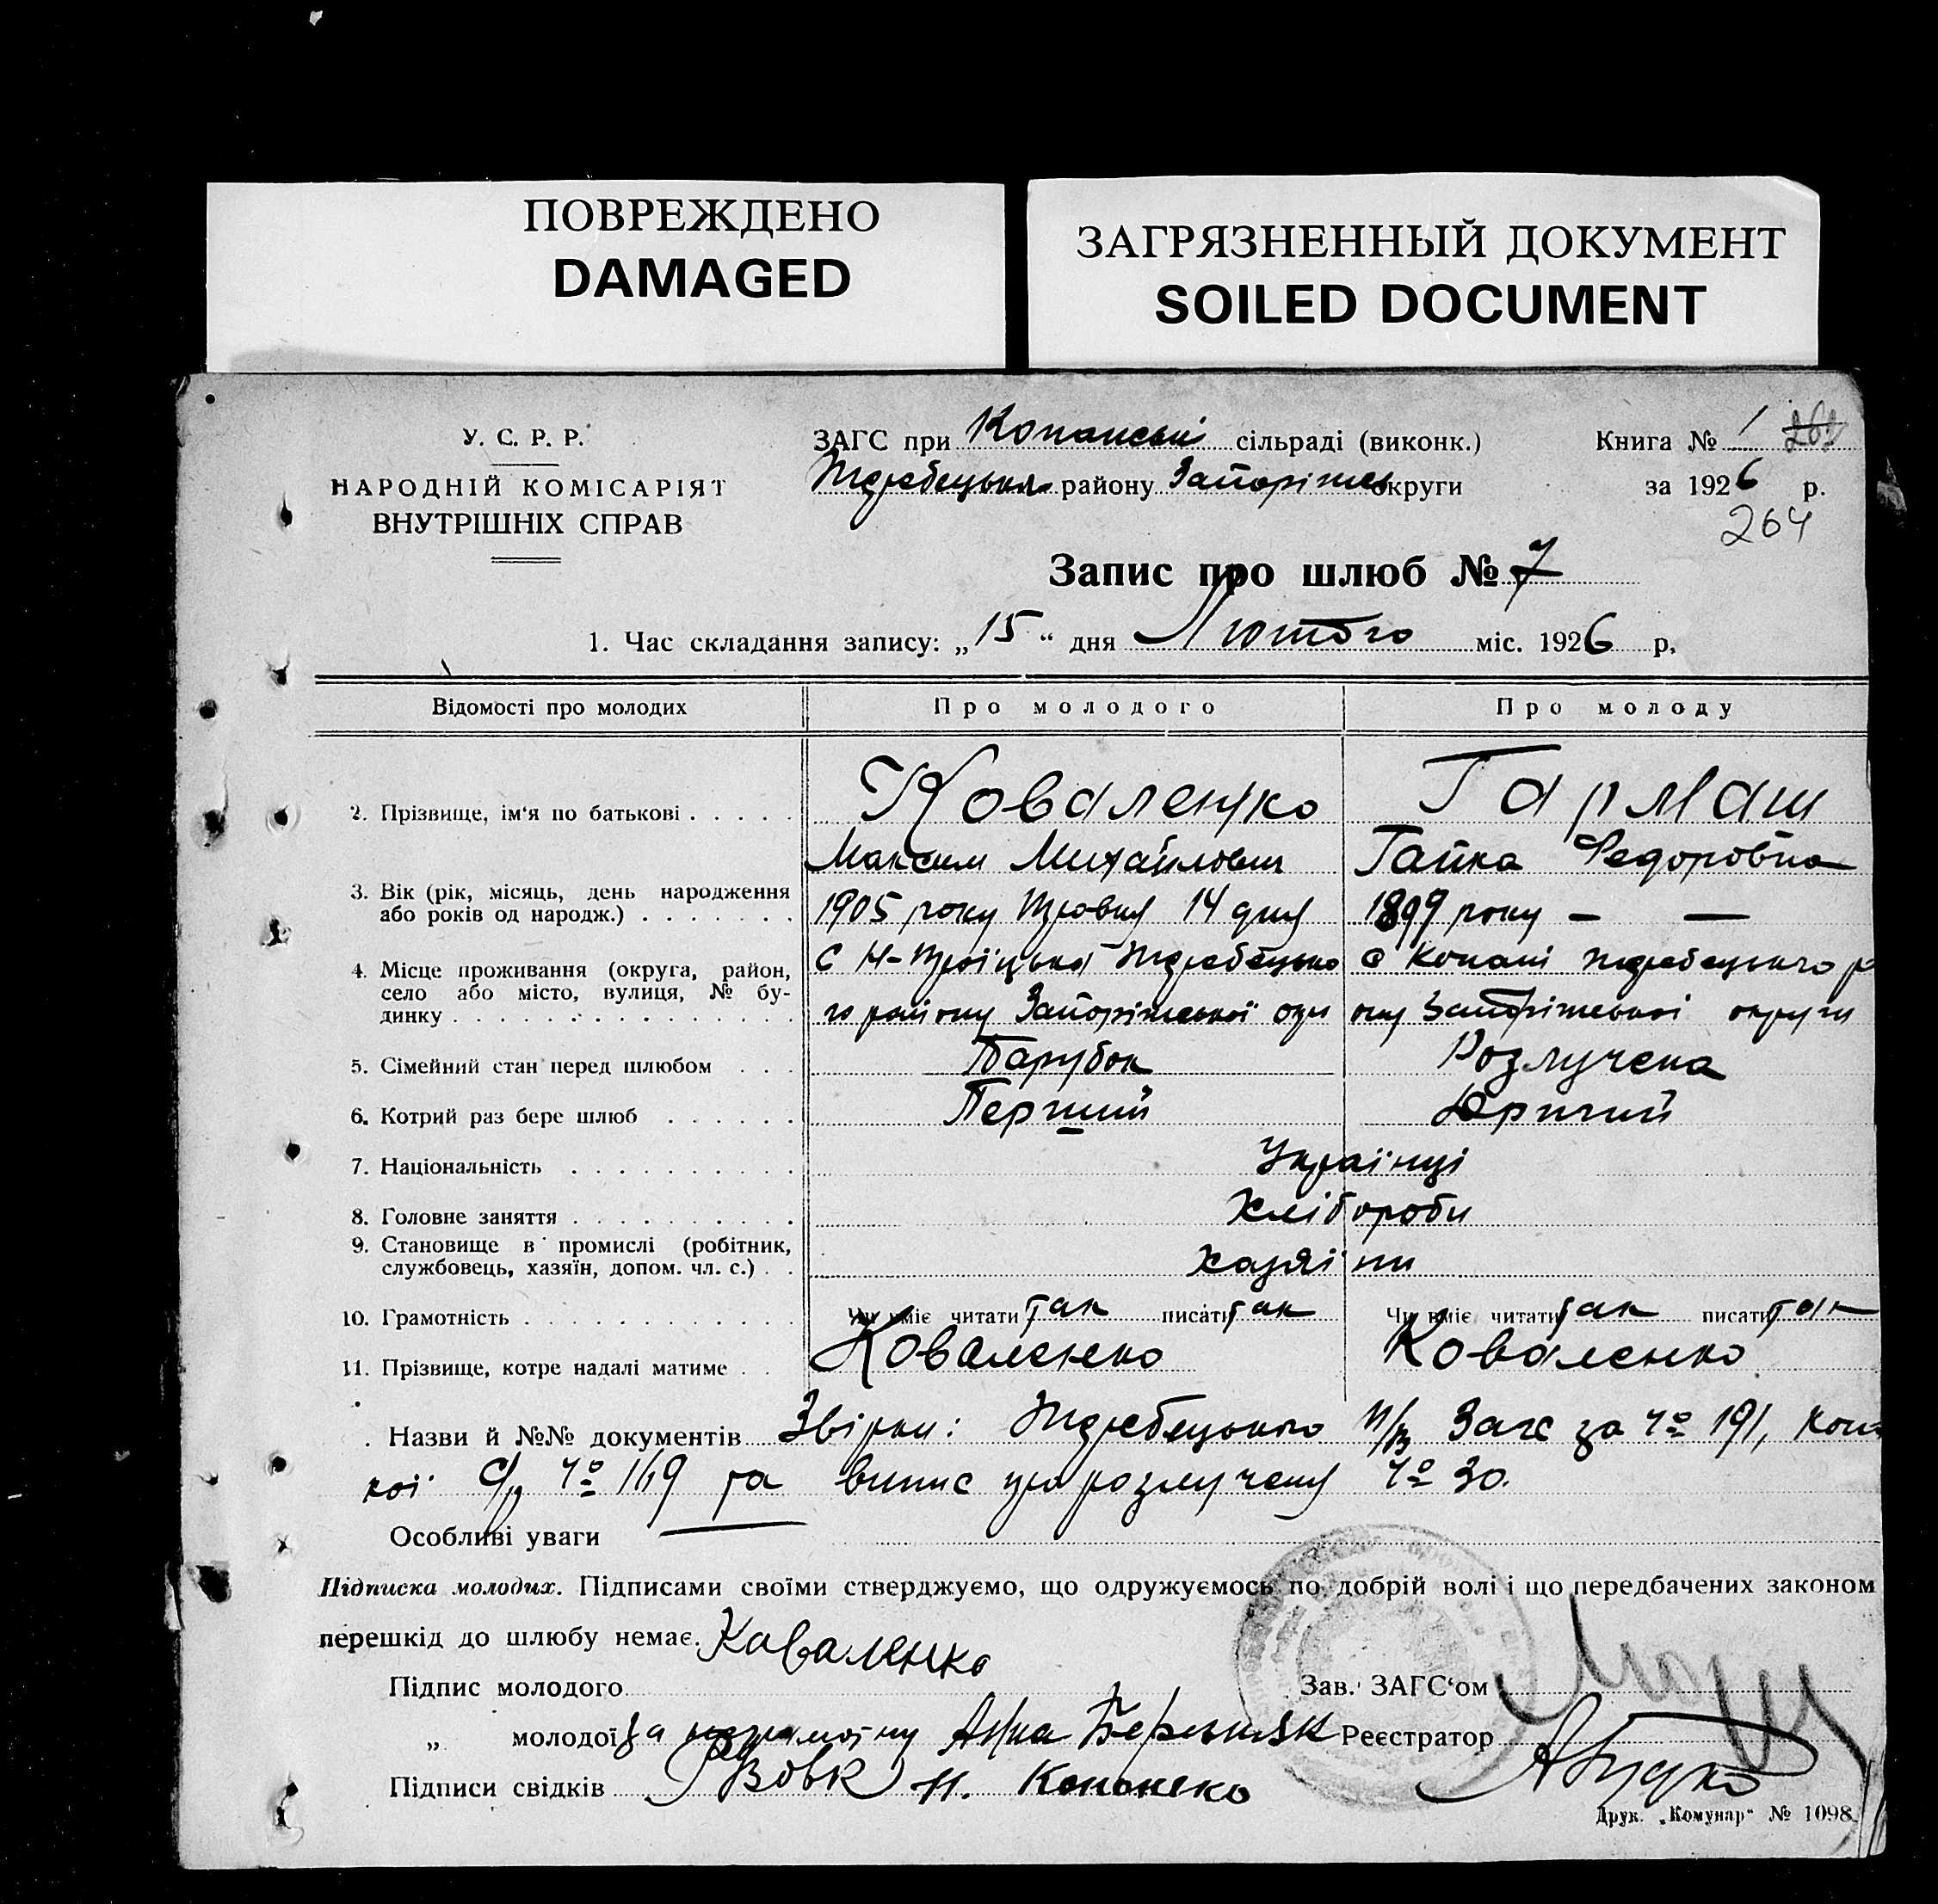 ПОВРЕЖДЕНО
DAMAGED
ЗАГРЯЗНЕННЫЙ ДОКУМЕНТ
SOILED DOCUMENT
У. С. Р. Р.
НАРОДНІЙ КОМІСАРІЯТ
ВНУТРІШНІХ СПРАВ
ЗАГС при Копанській сільраді (виконк.)
району Запоріжськ округи
Книга № 1
за 1926 р.
264
Запис про шлюб № 7
1. Час складання запису: „15“ дня Лютого міс. 1926 р.
Відомості про молодих
Про молодого
Про молоду
2. Прізвище, ім'я по батькові
Коваленко
Гармаш
Максим Михайлович
Гапка Федоровна
3. Вік (рік, місяць, день народження
або років од народж.)
1905 року 14 дня
1899 року — —
4. Місце проживання (округа, район,
село або місто, вулиця, № бу-
динку
с Н-Троїцької Жеребецько
с Копані жеребецького р
го району Запоріжської окр
ону Запоріжської округи
5. Сімейний стан перед шлюбом
Парубок
Розлучена
6. Котрий раз бере шлюб
Перший
7. Національність
Українці
8. Головне заняття
Хлібороби
9. Становище в промислі (робітник,
службовець, хазяїн, допом. чл. с.)
хазяїни
10. Грамотність
Чи вміє читати так писати так
Чи вміє читати так писати так
11. Прізвище, котре надалі матиме
Коваленко
Коваленко
Назви й №№ документів Жеребецького Загс за № 191,
кої с/р № 169 та випис про розлучену № 30.
Особливі уваги —
Підписка молодих. Підписами своїми стверджуємо, що одружуємось по добрій волі і що передбачених законом
перешкід до шлюбу немає.
Підпис молодого Коваленко
Зав. ЗАГС'ом
„ молодої за неграмотну
Реєстратор
Підписи свідків Вовк Н. Кононенко
Друк. „Комунар“ № 1098